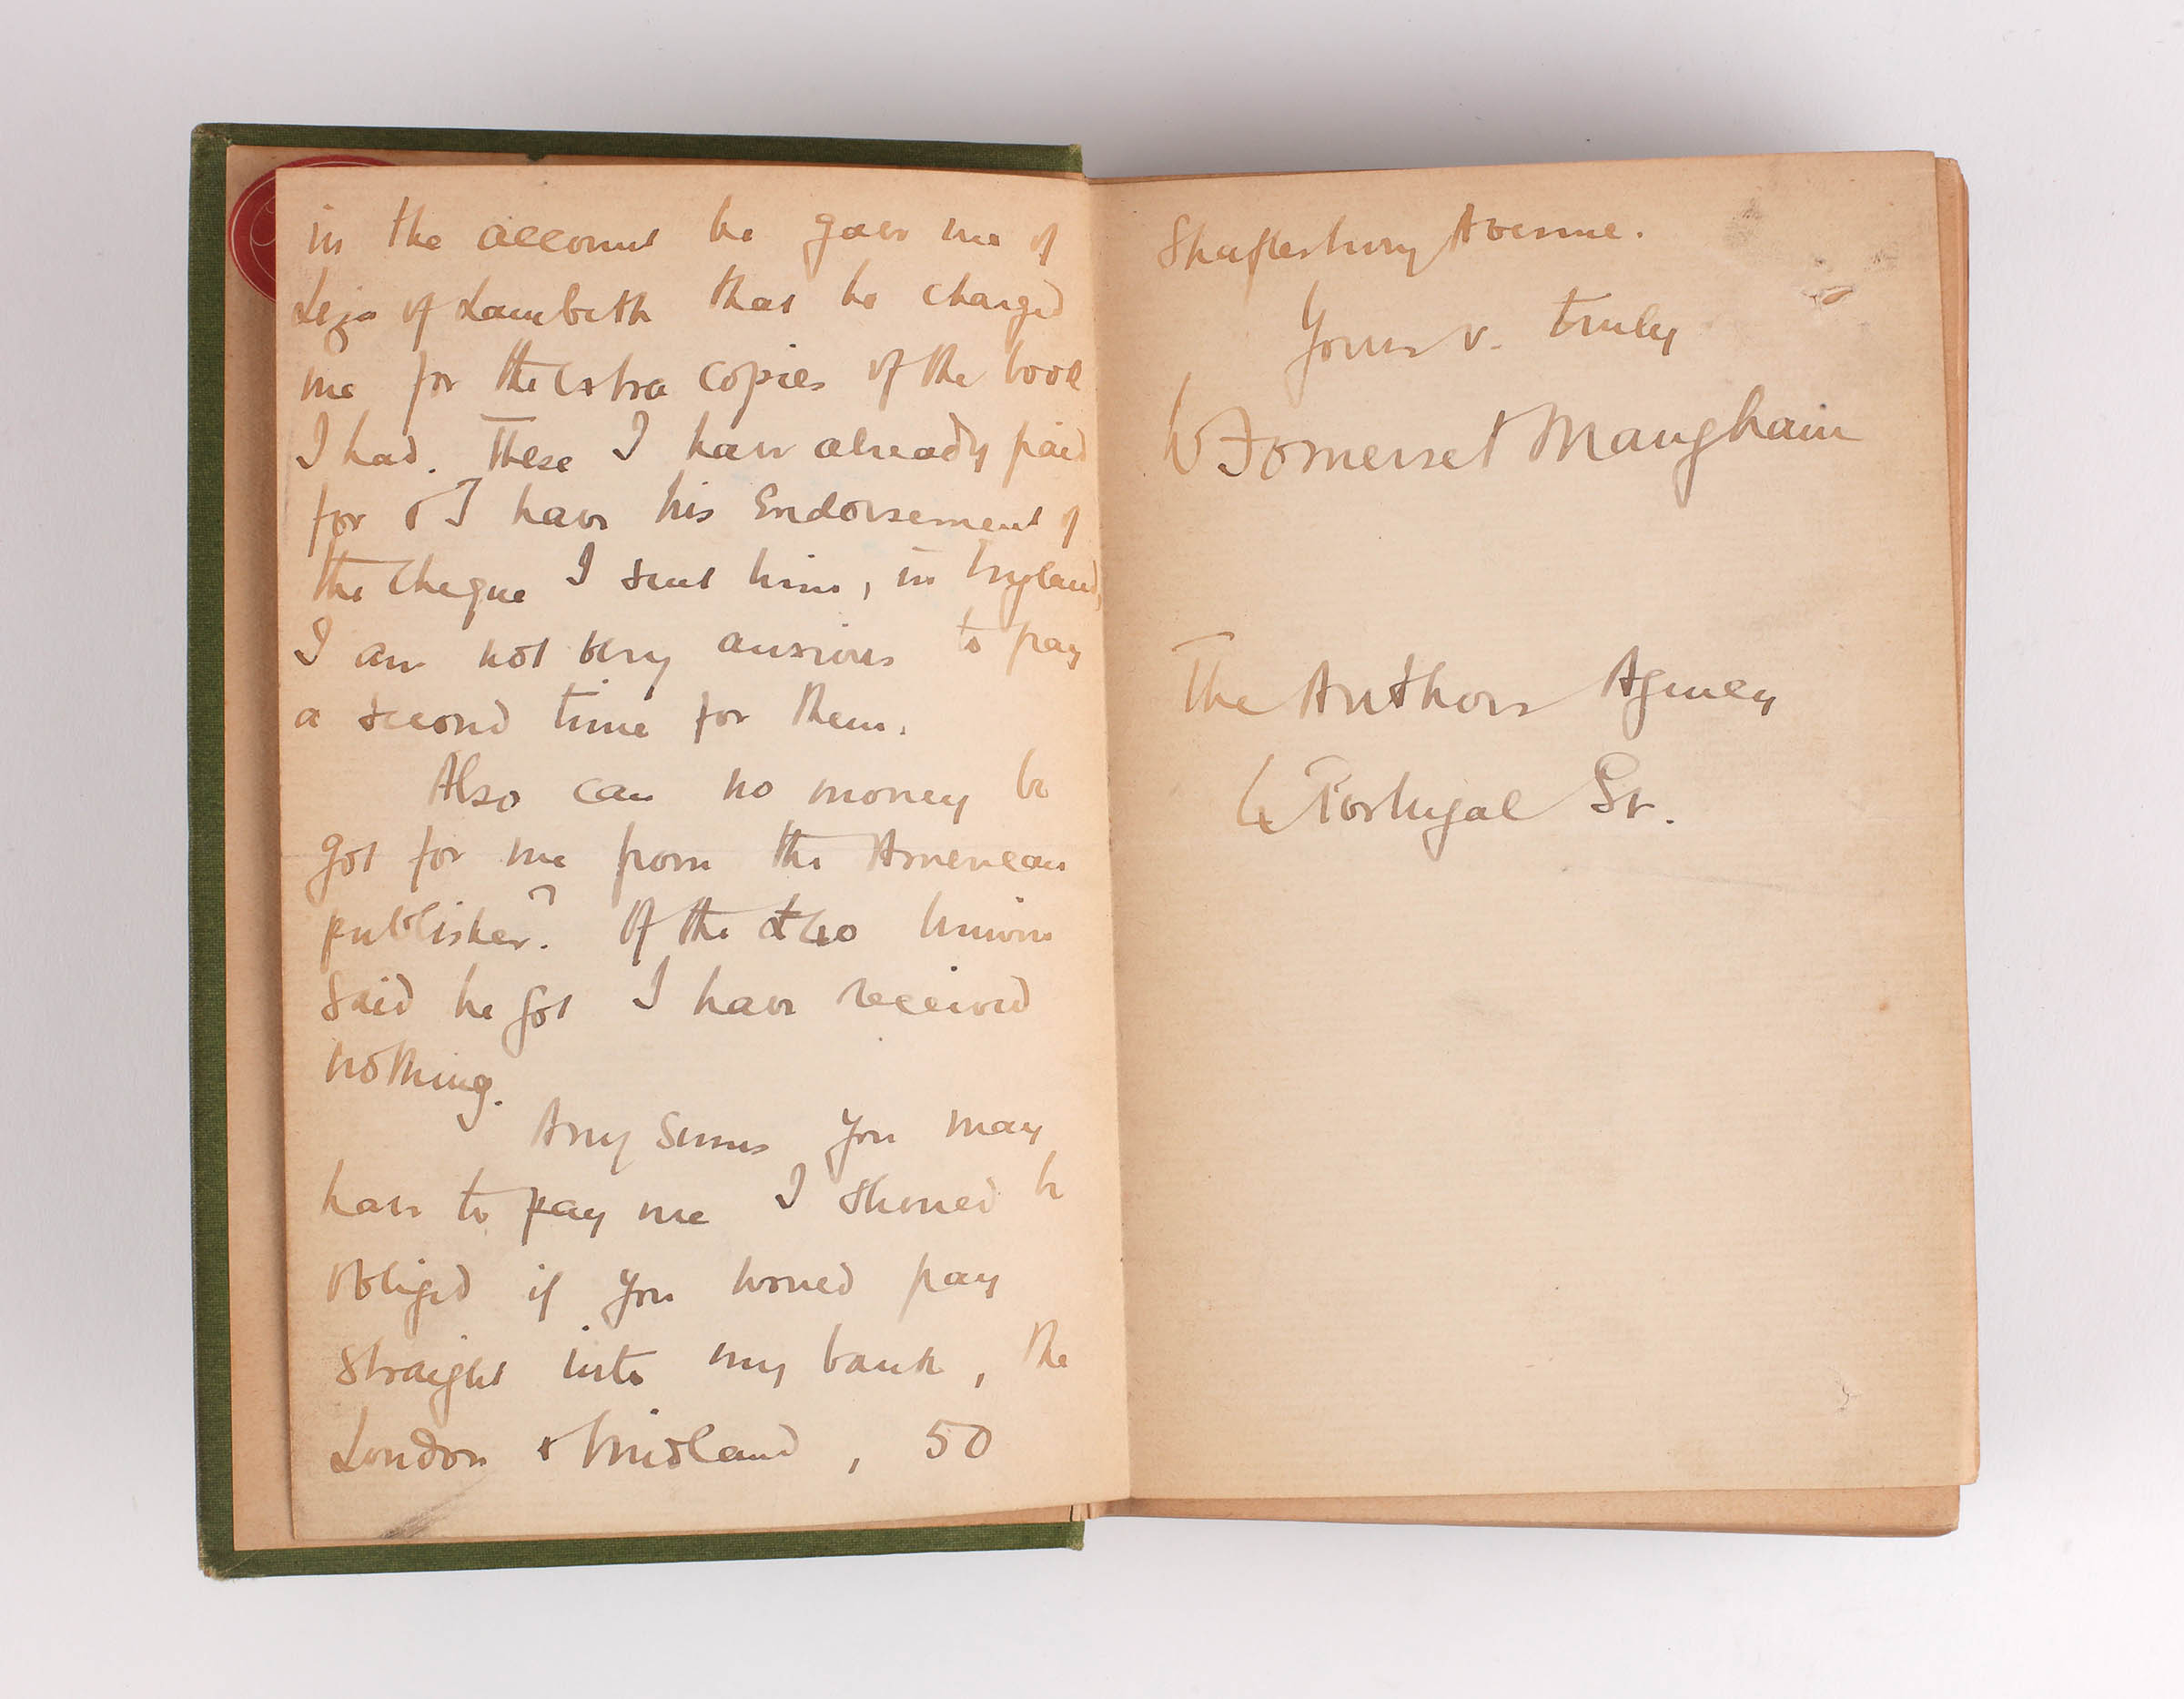 in the account he gave me of
Liza of Lambeth that he charged
me for the extra copies of the book
I had. These I have already paid
for & I have his endorsement of
the cheque I sent him, in England,
I am not very anxious to pay
a second time for them.
Also can no money be
got for me from the American
publisher? Of the £40 Unwin
said he got I have received
nothing.
Any sums you may
have to pay me I should be
obliged if you would pay
straight into my bank, the
London & Midland, 50
Shaftesbury Avenue.
Yours v. truly
W Somerset Maugham
The Authors Agency
4 Portugal St.